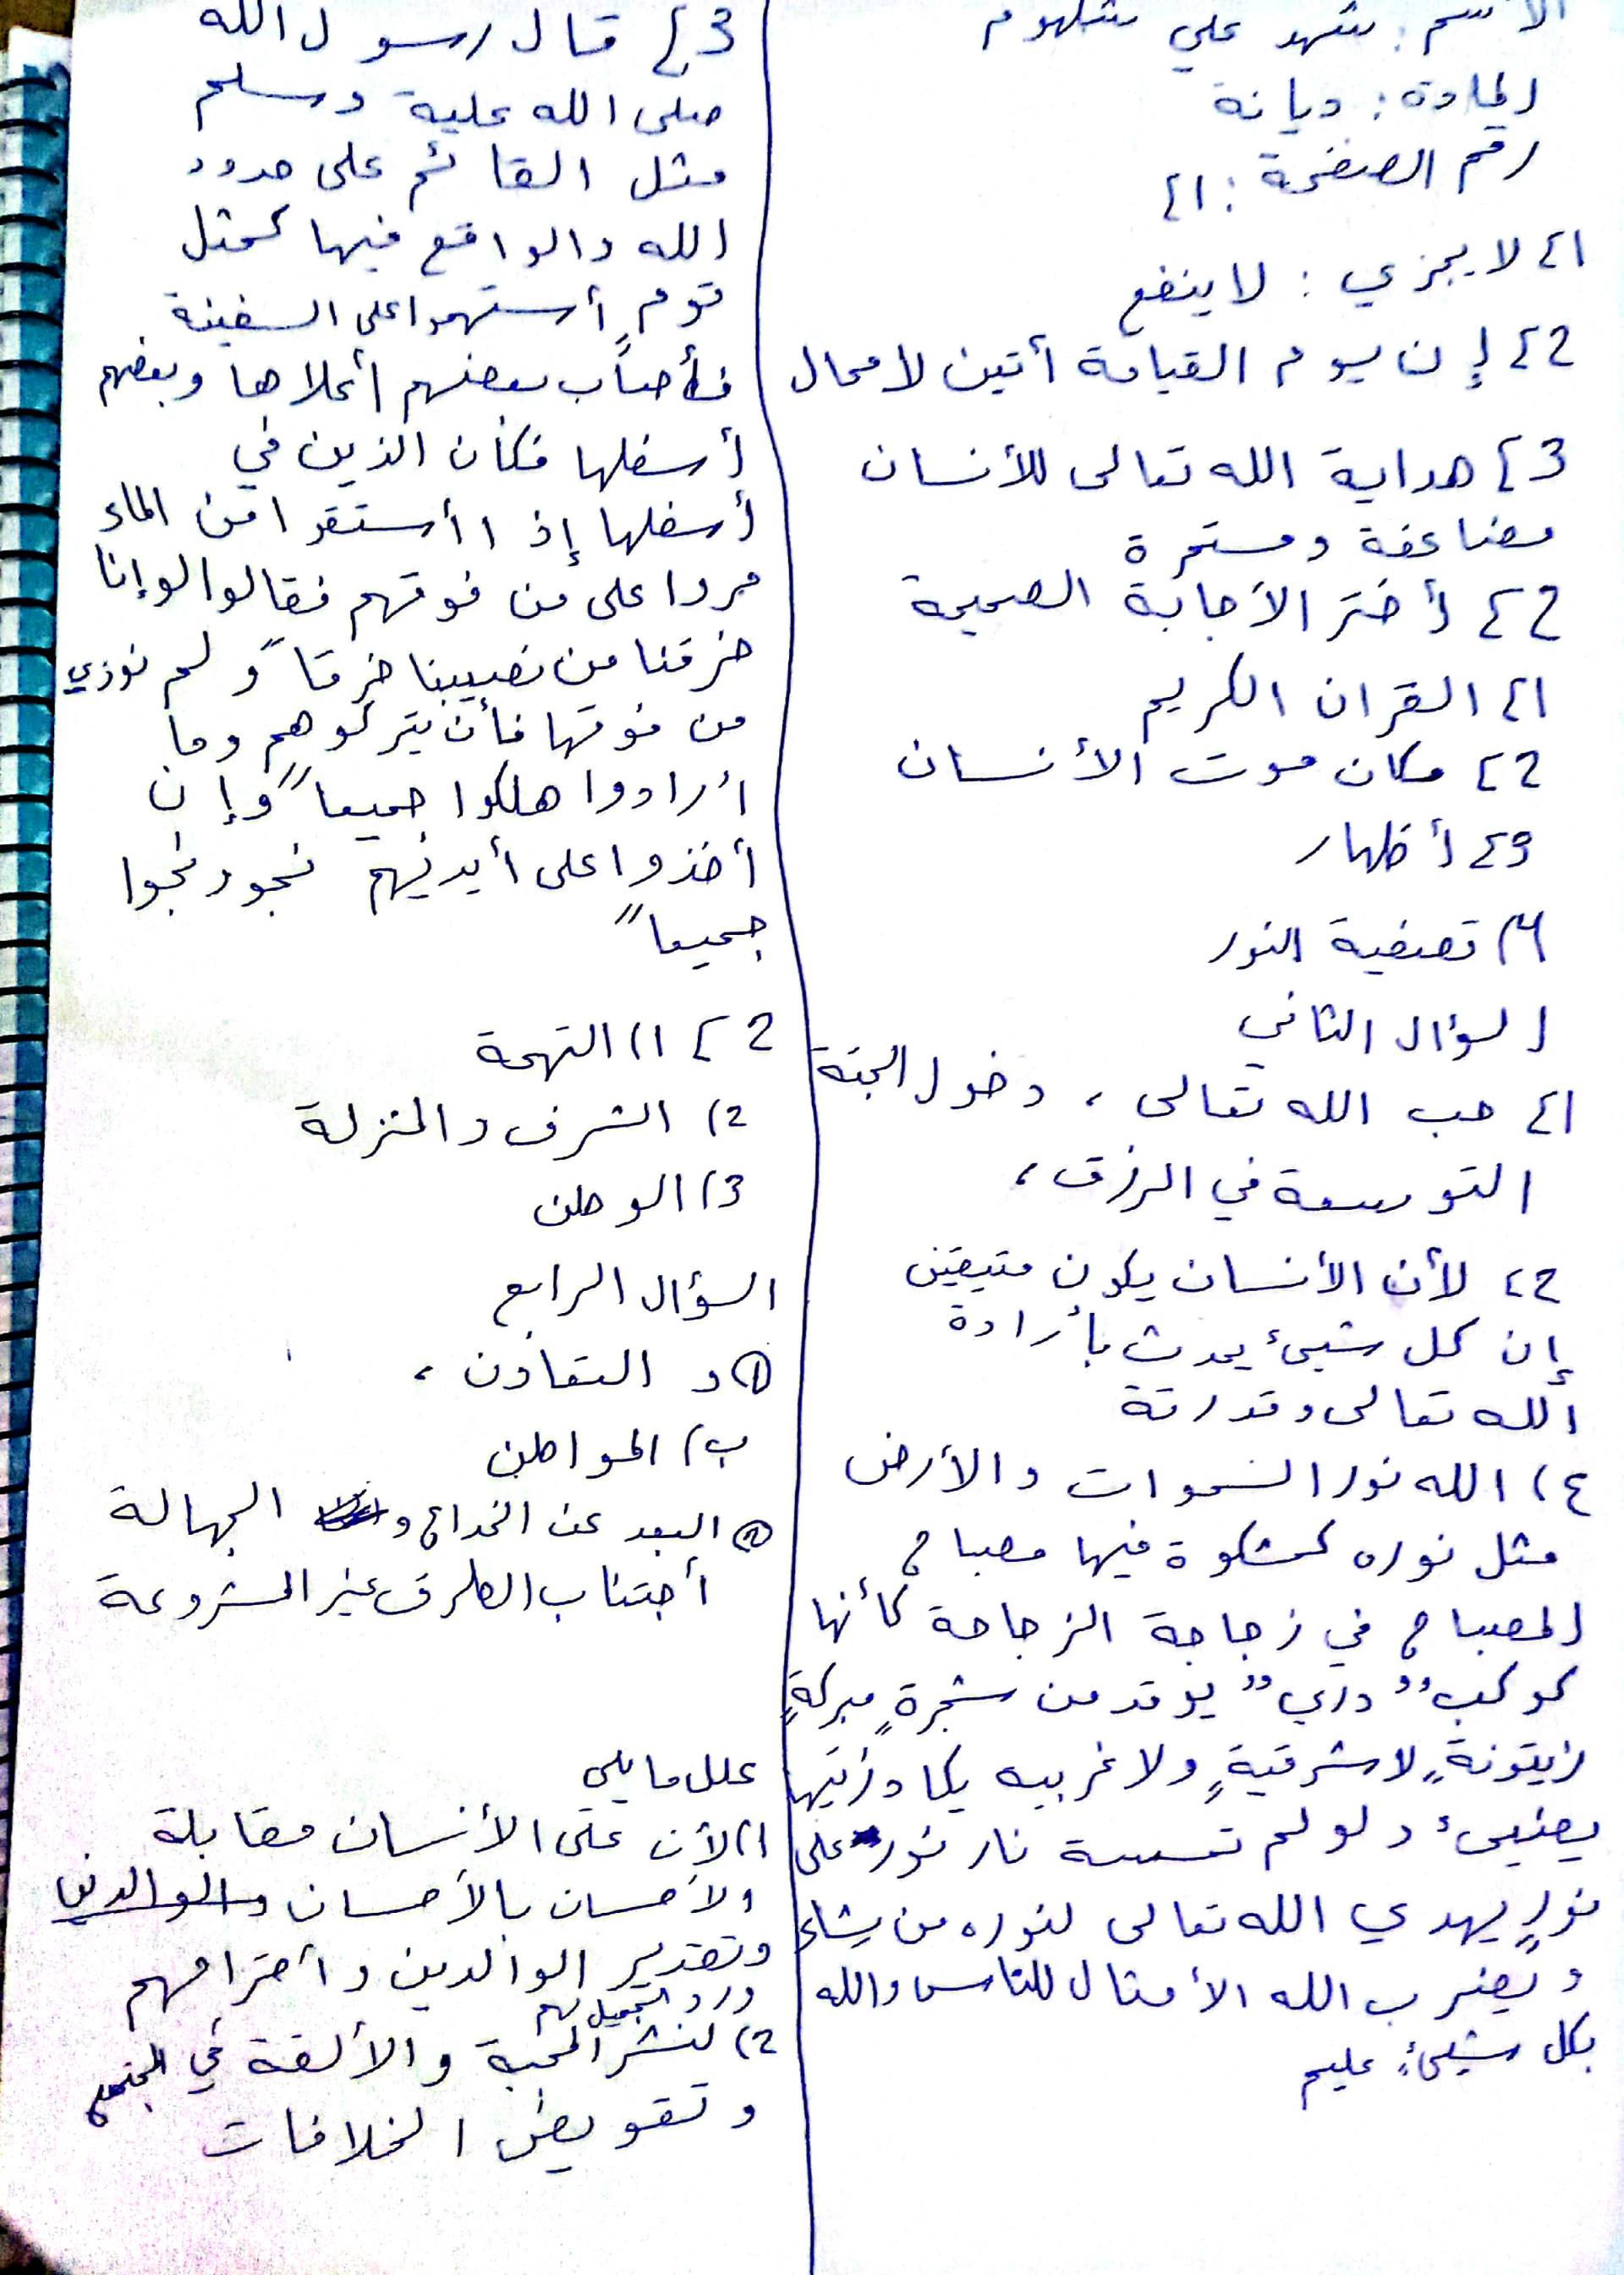 الاسم : شهد علي شلهوم
المادة : ديانة
رقم الصفحة : 1
1) لا يجزي : لا ينفع
2) إن يوم القيامة أتين لا محال
3) هداية الله تعالى للأنسان
مضاعفة ومستمرة
2) أختر الأجابة الصحيحة
1) القران الكريم
2) مكان موت الأنسان
3) أظهار
4) تصفية النور
السؤال الثاني
1) حب الله تعالى ، دخول الجنة
التوسعة في الرزق ،
2) لأن الأنسان يكون متيقين
إن كل شيئ يحدث بأرادة
الله تعالى وقدرتة
4) الله نور السموات والأرض
مثل نوره كمشكوة فيها مصباح
المصباح في زجاجة الزجاجة كأنها
كوكب" دري" يوقد من شجرةٍ مبركةٍ
زيتونةٍ لا شرقيةٍ ولا غربيه يكاد زيتها
يضيئ ولو لم تمسسة نار نور على
نورٍ يهدي الله تعالى لنوره من يشاء
ويضرب الله الأمثال للناس والله
بكل شيئٍ عليم
3) قال رسول الله
صلى الله علية وسلم
مثل القائم على حدود
الله والواقع فيها كمثل
قومٍ أستهموا على السفينة
فأصاب بعضهم أعلاها وبعضهم
أسفلها فكان الذين في
أسفلها إذا أستقوا من الماء
مروا على من فوقهم فقالوا لو إنا
خرقنا من نصيبنا خرقاً و لم نوذي
من فوقها فأن يتركوهم وما
أرادوا هلكوا جميعاً وإن
أخذوا على أيديهم نجو ونجوا
جميعاً
2) 1) التهمة
2) الشرف والمنزلة
3) الوطن
السؤال الرابع
1) د التعاون ،
ب) المواطن
2) البعد عن الخداع و الجهالة
أجتناب الطرق غير المشروعة
علل ما يلي
1) لأن على الأنسان مقابلة
الأحسان بالأحسان والوالدين
وتقدير الوالدين وأحترامهم
ورد الجميل لهم
2) لنشر المحبة والألفة في المجتمع
وتقويض الخلافات